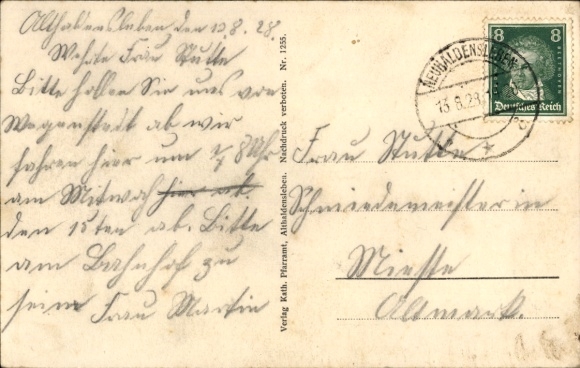 Althaldensleben den 13.8.28.
Wehrte Frau Stutte
Bitte hollen Sie uns von
Wegenstedt ab wir
fahren hier um 1/2 8 Uhr
am Mitwoh hier ab.
den 15ten ab. Bitte
am Bahnhof zu
sein Frau Martin
Verlag Kath. Pfarramt, Althaldensleben. Nachdruck verboten. Nr. 1255.
NEUHALDENSLEBEN
13.8.28.
8 8
BEETHOVEN
Deutsches Reich
Frau Stutte
Schmiedemeisterin
Mieste
Altmark.